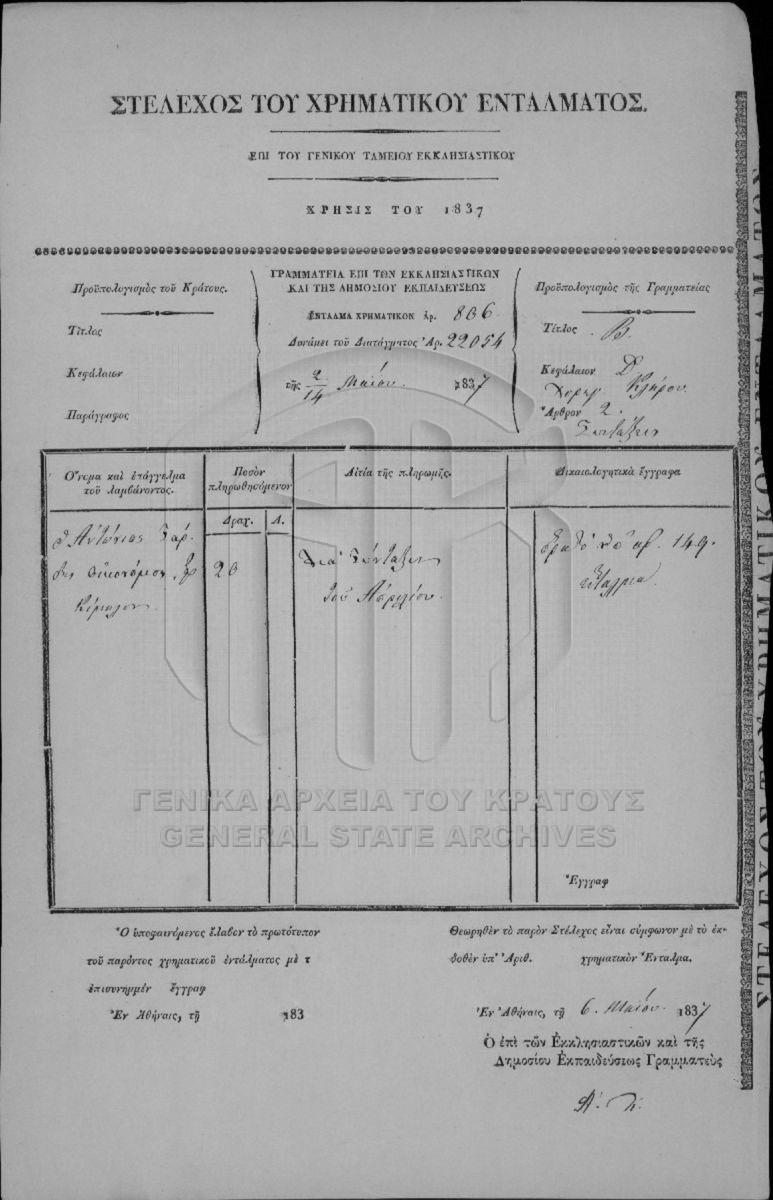 ΣΤΕΛΕΧΟΣ ΤΟΥ ΧΡΗΜΑΤΙΚΟΥ ΕΝΤΑΛΜΑΤΟΣ.
ΕΠΙ ΤΟΥ ΓΕΝΙΚΟΥ ΤΑΜΕΙΟΥ ΕΚΚΛΗΣΙΑΣΤΙΚΟΥ
ΧΡΗΣΙΣ ΤΟΥ 1837
Προϋπολογισμὸς τοῦ Κράτους.
Τίτλος
Κεφάλαιον
Παράγραφος
ΓΡΑΜΜΑΤΕΙΑ ΕΠΙ ΤΩΝ ΕΚΚΛΗΣΙΑΣΤΙΚΩΝ
ΚΑΙ ΤΗΣ ΔΗΜΟΣΙΟΥ ΕΚΠΑΙΔΕΥΣΕΩΣ
ΕΝΤΑΛΜΑ ΧΡΗΜΑΤΙΚΟΝ ἀρ. 806.
Δυνάμει τοῦ Διατάγματος Ἀρ. 22054
τῆς 2/14 Μαΐου. 1837
Προϋπολογισμὸς τῆς Γραμματείας
Τίτλος Β.
Κεφάλαιον Δ.
Κλήρου
Ἄρθρον 2.
Συντάξεις
Ὄνομα καὶ ἐπάγγελμα
τοῦ λαμβάνοντος.
Ποσὸν
πληρωθησόμενον
Δραχ. Λ.
Αἰτία τῆς πληρωμῆς.
Δικαιολογητικὰ ἔγγραφα
Ἀντώνιος
Οἰκονόμος
Κίμωλον
20
Διὰ Σύνταξιν
τοῦ Ἀπριλίου.
ἀρ. 149.
ἔνταλμα
Ἔγγραφ
Ὁ ὑποφαινόμενος ἔλαβον τὸ πρωτότυπον
τοῦ παρόντος χρηματικοῦ ἐντάλματος μὲ τ
ἐπισυνημμέν ἔγγραφ
Ἐν Ἀθήναις, τῇ 183
Θεωρηθὲν τὸ παρὸν Στέλεχος εἶναι σύμφωνον μὲ τὸ ἐκ-
δοθὲν ὑπ' Ἀριθ. χρηματικὸν Ἔνταλμα.
Ἐν Ἀθήναις, τῇ 6. Μαΐου. 1837
Ὁ ἐπὶ τῶν Ἐκκλησιαστικῶν καὶ τῆς
Δημοσίου Ἐκπαιδεύσεως Γραμματεὺς
ΓΕΝΙΚΑ ΑΡΧΕΙΑ ΤΟΥ ΚΡΑΤΟΥΣ
GENERAL STATE ARCHIVES
ΣΤΕΛΕΧΟΣ ΤΟΥ ΧΡΗΜΑΤΙΚΟΥ ΕΝΤΑΛΜΑΤΟΣ